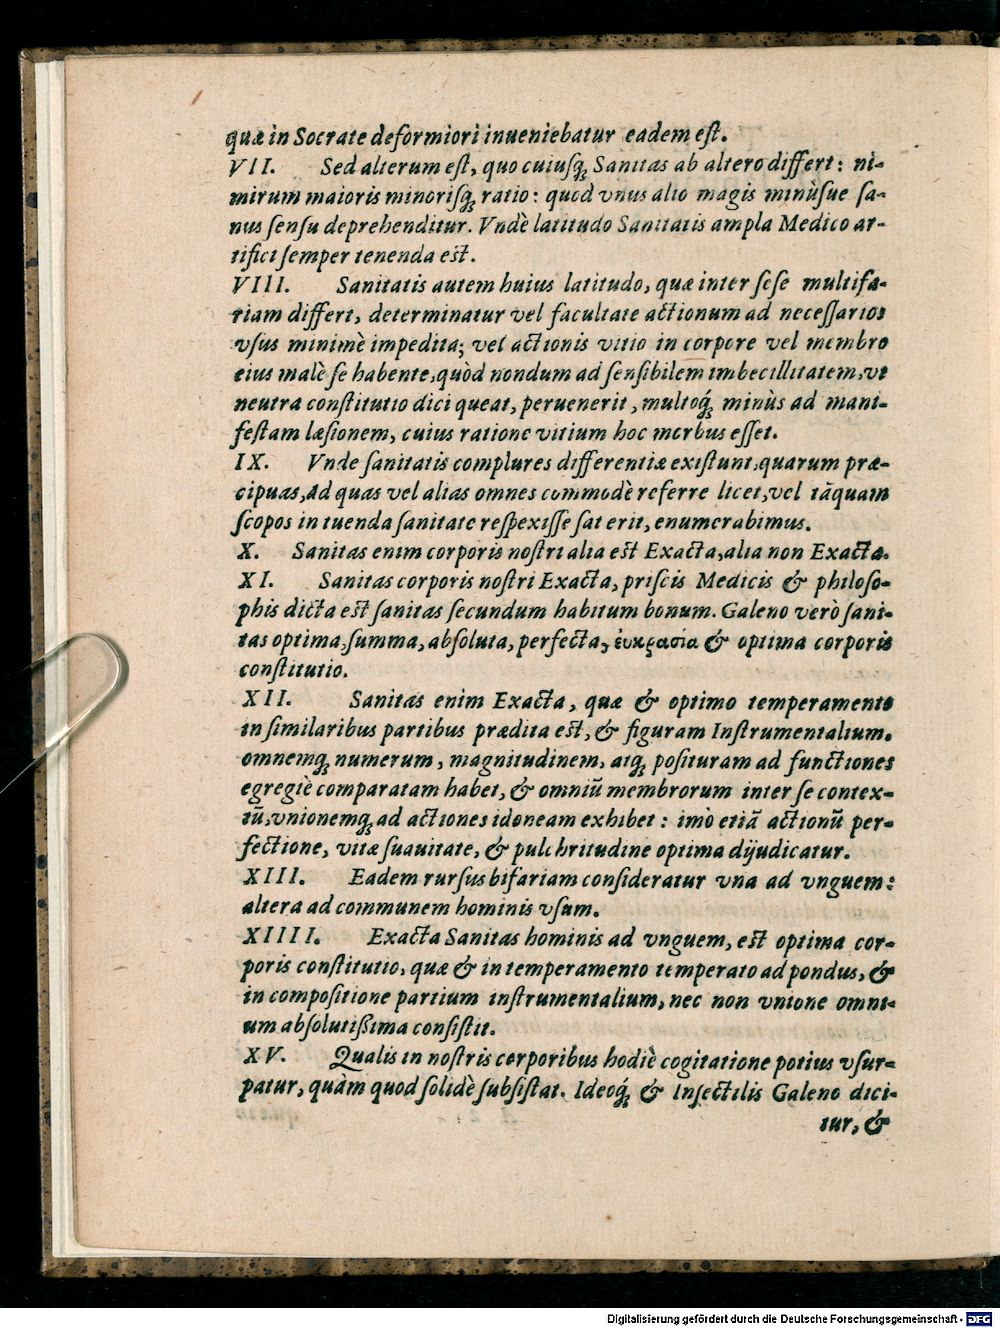 quæ in Socrate deformiori inueniebatur eadem eſt.
VII. Sed alterum eſt, quo cuiuſq́; Sanitas ab altero differt: ni-
mirum maioris minoriſq́; ratio: quod vnus alio magis minùſue ſa-
nus ſenſu deprehenditur. Vndè latitudo Sanitatis ampla Medico ar-
tifici ſemper tenenda eſt.
VIII. Sanitatis autem huius latitudo, quæ inter ſeſe multifa-
riam differt, determinatur vel facultate actionum ad neceſſarios
vſus minimè impedita; vel actionis vitio in corpore vel membro
eius malè ſe habente, quòd nondum ad ſenſibilem imbecillitatem, vt
neutra conſtitutio dici queat, peruenerit, multoq́; minùs ad mani-
feſtam læſionem, cuius ratione vitium hoc morbus eſſet.
IX. Vnde ſanitatis complures differentiæ exiſtunt, quarum præ-
cipuas, ad quas vel alias omnes commodè referre licet, vel tāquam
ſcopos in tuenda ſanitate reſpexiſſe ſat erit, enumerabimus.
X. Sanitas enim corporis noſtri alia eſt Exacta, alia non Exacta.
XI. Sanitas corporis noſtri Exacta, priſcis Medicis & philoſo-
phis dicta eſt ſanitas ſecundum habitum bonum. Galeno verò ſani-
tas optima, ſumma, abſoluta, perfecta, ἐυκρασία & optima corporis
conſtitutio.
XII. Sanitas enim Exacta, quæ & optimo temperamento
in ſimilaribus partibus prædita eſt, & figuram Inſtrumentalium,
omnemq́; numerum, magnitudinem, atq́; poſituram ad functiones
egregiè comparatam habet, & omniū membrorum inter ſe contex-
tū, vnionemq́; ad actiones idoneam exhibet: imò etiā actionū per-
fectione, vitæ ſuauitate, & pulchritudine optima dijudicatur.
XIII. Eadem rurſus bifariam conſideratur vna ad vnguem:
altera ad communem hominis vſum.
XIIII. Exacta Sanitas hominis ad vnguem, eſt optima cor-
poris conſtitutio, quæ & in temperamento temperato ad pondus, &
in compoſitione partium inſtrumentalium, nec non vnione omni-
um abſolutißima conſiſtit.
XV. Qualis in noſtris corporibus hodiè cogitatione potius vſur-
patur, quàm quod ſolidè ſubſiſtat. Ideoq́; & Inſectilis Galeno dici-
tur, &
Digitalisierung gefördert durch die Deutsche Forschungsgemeinschaft - DFG